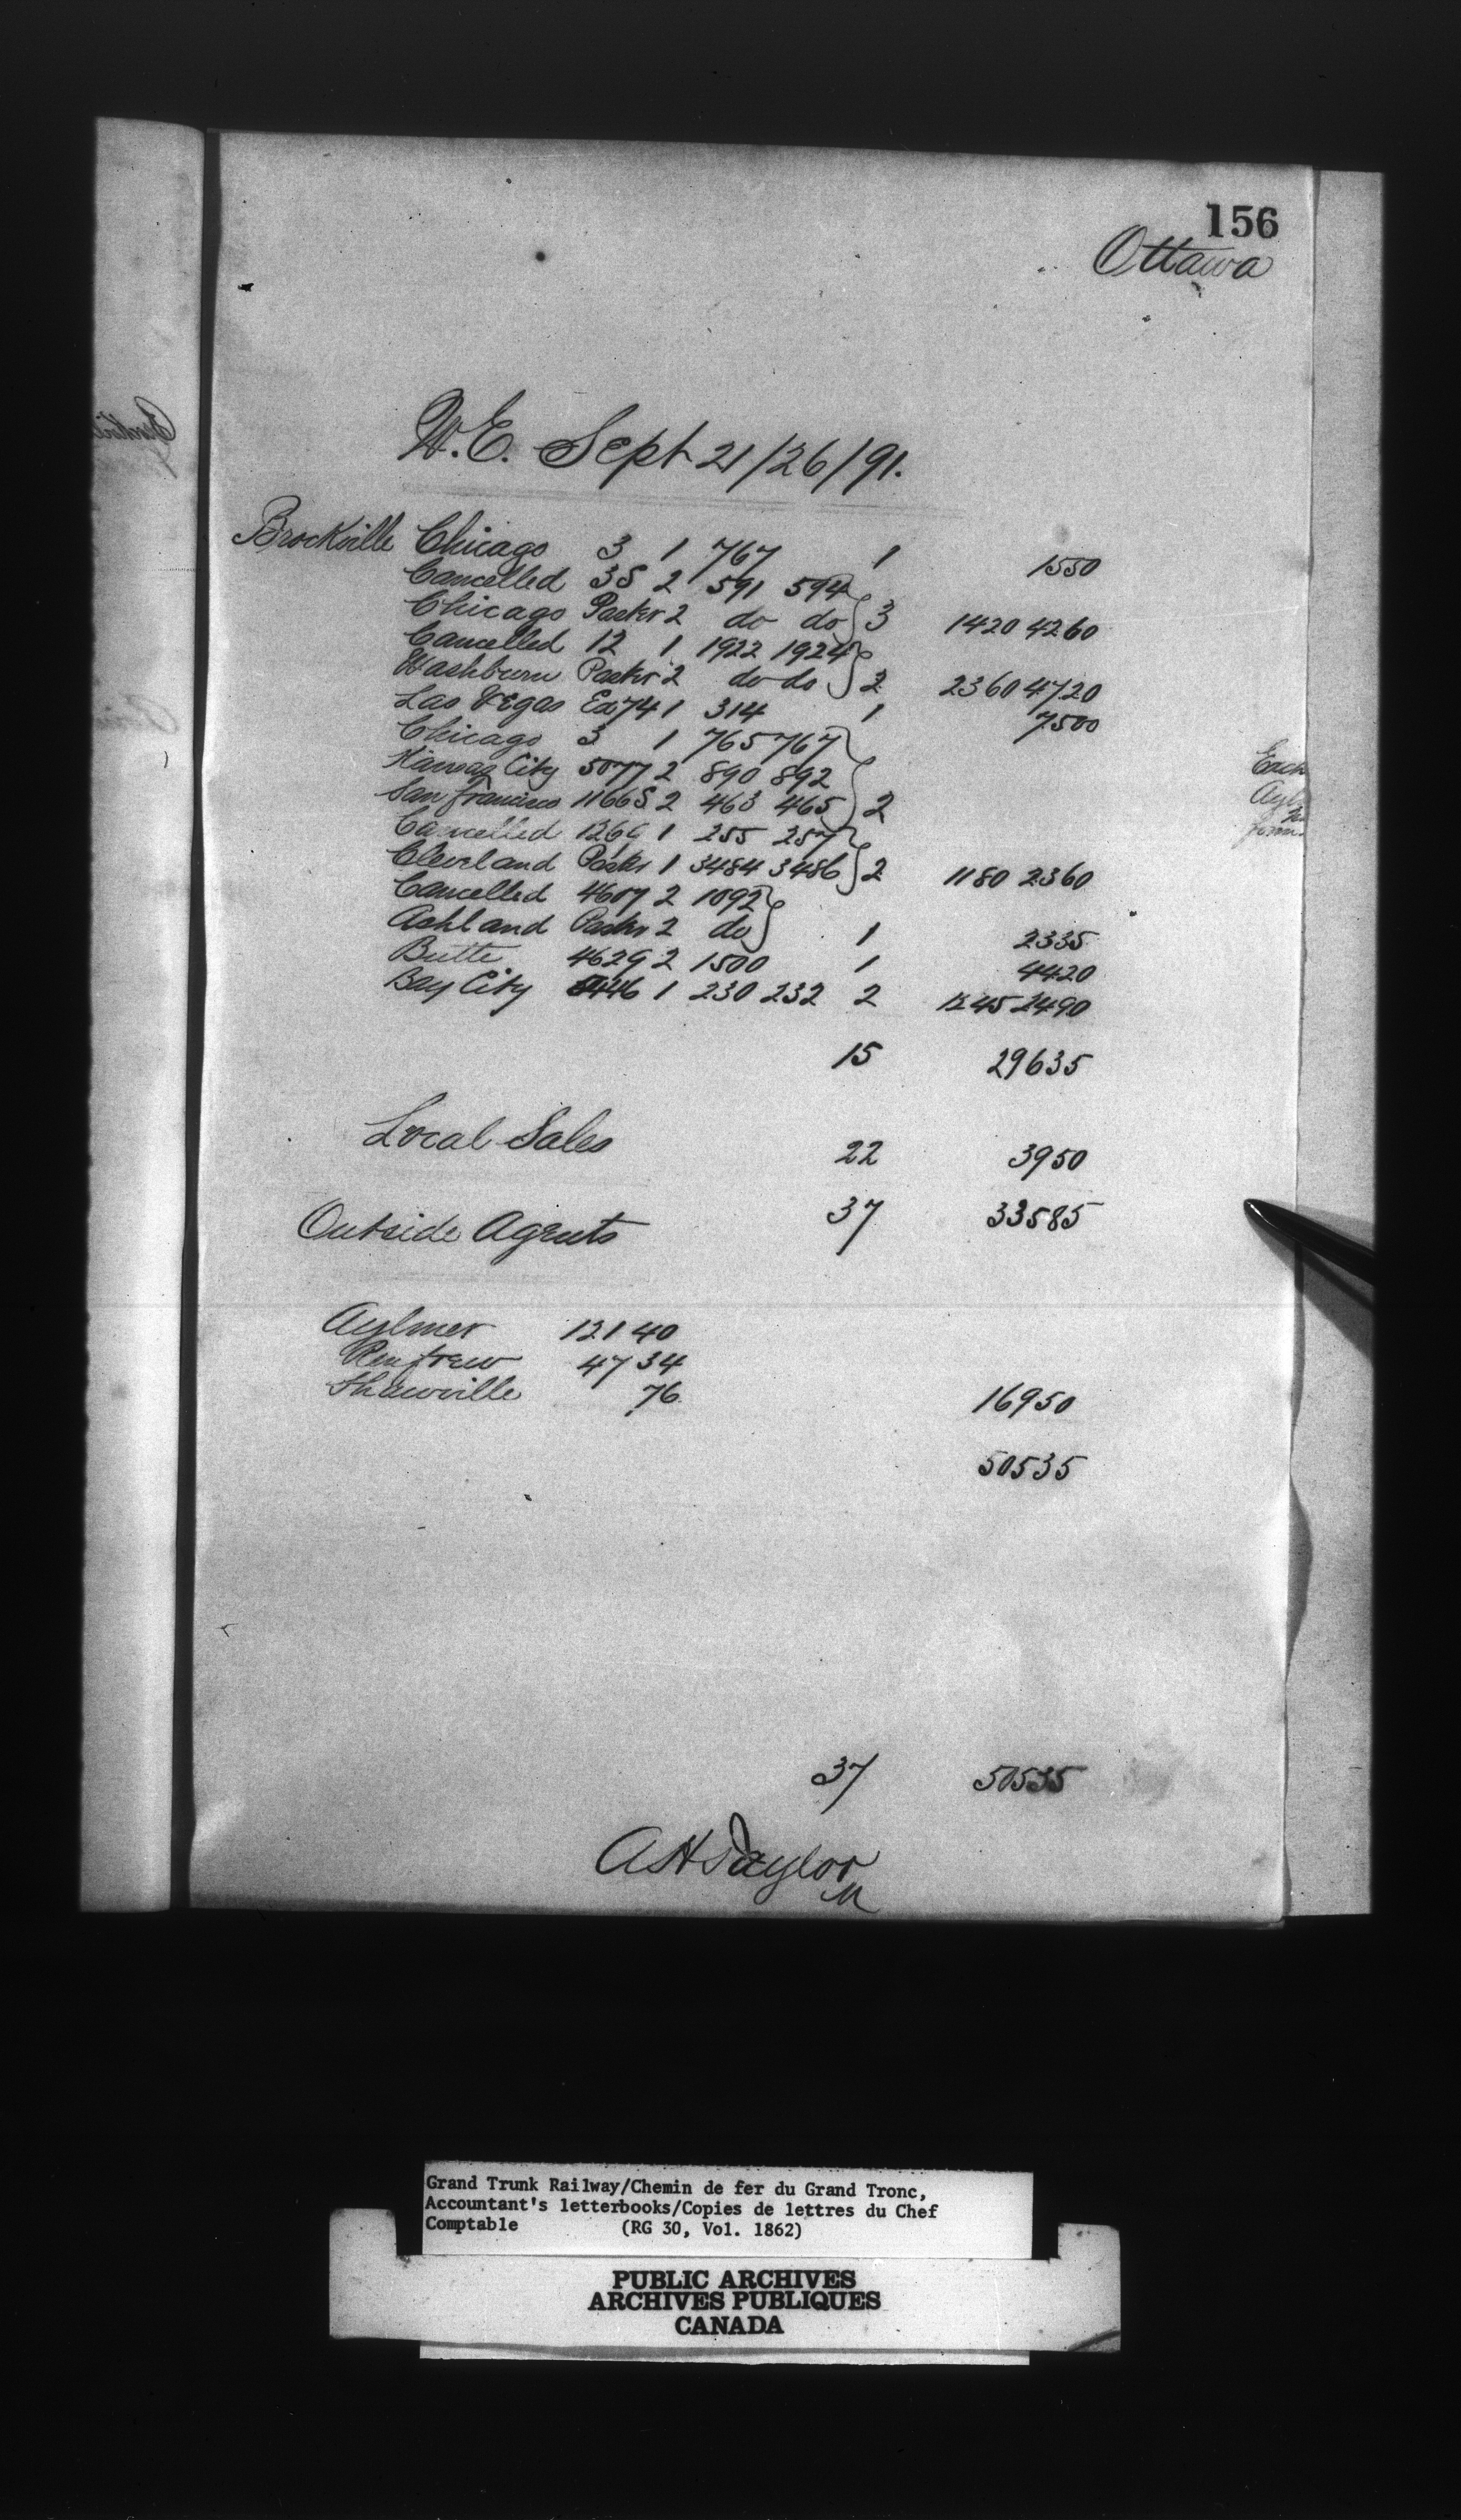 156
Ottawa
W.E. Sept 21/26/91.
Brockville Chicago 3 1 767 1 1550
Cancelled 3S 2 591 594
Chicago Paster 2 do do } 3 1420 4260
Cancelled 12 1 1922 1924
Washburn Paster 2 do do } 2 2360 4720
Las Vegas Ex 74 1 314 1 7500
Chicago 3 1 765 767
Kansas City 5077 2 890 892
San Francisco 1166S 2 463 465 } 2
Cancelled 1269 1 255 257
Cleveland Paster 1 3484 3486 } 2 1180 2360
Cancelled 4607 2 1092
Ashland Paster 2 do } 1 2335
Butte 4629 2 1500 1 4420
Bay City 446 1 230 232 2 1245 2490
15 29635
Local Sales 22 3950
37 33585
Outside Agents
Aylmer 121 40
Renfrew 47 34
Shawville 76 16950
50535
37 50535
A H Taylor
M
Grand Trunk Railway/Chemin de fer du Grand Tronc,
Accountant's letterbooks/Copies de lettres du Chef
Comptable (RG 30, Vol. 1862)
PUBLIC ARCHIVES
ARCHIVES PUBLIQUES
CANADA